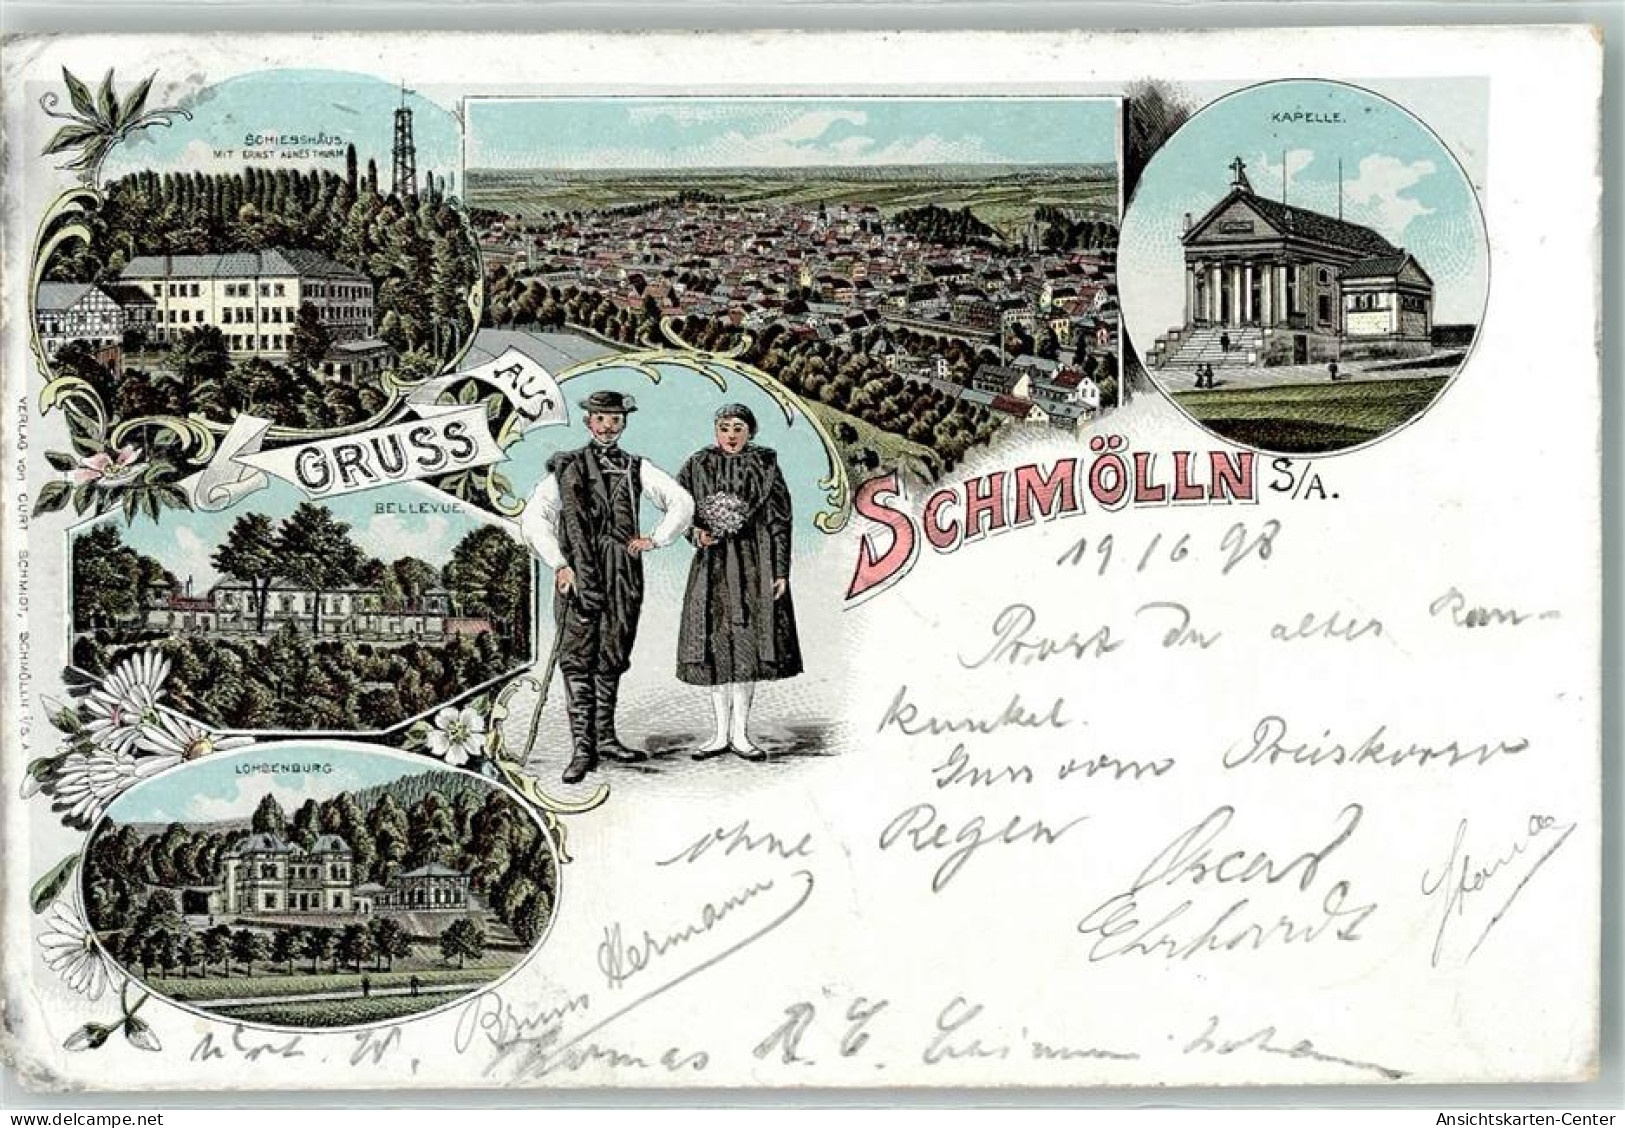 SCHIESSHAUS.
MIT ERNST AGNES THURM.
KAPELLE.
GRUSS AUS
SCHMÖLLN S/A.
BELLEVUE.
LOHSENBURG.
VERLAG von CURT SCHMIDT, SCHMÖLLN i/S. A.
19./6 98
Prost Du alter Ran-
kunkel.
Gruss vom Preiskegeln
ohne Regen
Oscar
Ehrhardt
Bruno Hermann
Thomas
delcampe.net
Ansichtskarten-Center